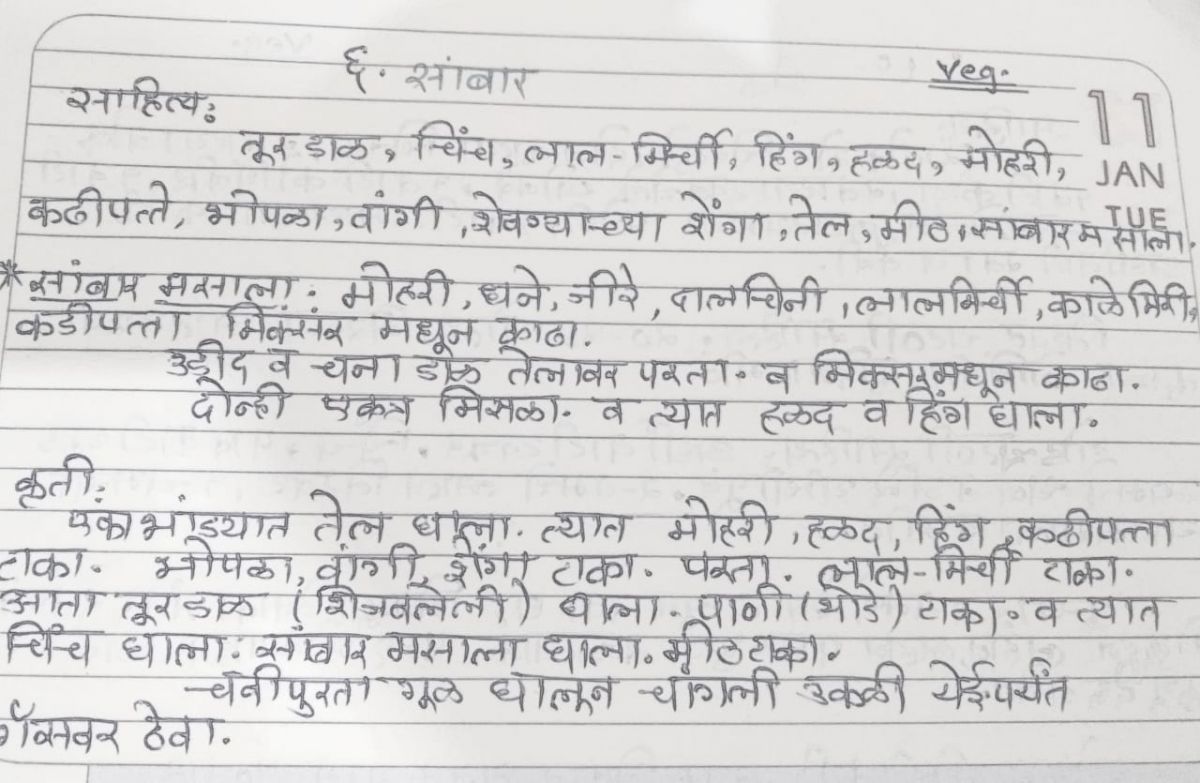 ६. सांबार
Veg.
साहित्य:
11
JAN
TUE
तूर डाळ, चिंच, लाल-मिर्ची, हिंग, हळद, मोहरी,
कढीपत्ते, भोपळा, वांगी, शेवग्याच्या शेंगा, तेल, मीठ, सांबार मसाला.
* सांबार मसाला: मोहरी, धने, जीरे, दालचिनी, लालमिर्ची, काळेमिरी,
कडीपत्ता मिक्सर मधून काढा.
उडीद व चना डाळ तेलावर परता. व मिक्सरमधून काढा.
दोन्ही एकत्र मिसळा. व त्यात हळद व हिंग घाला.
कृती:
एका भांड्यात तेल घाला. त्यात मोहरी, हळद, हिंग, कढीपत्ता
टाका. भोपळा, वांगी, शेंगा टाका. परता. लाल-मिर्ची टाका.
आता तूरडाळ (शिजवलेली) घाला. पाणी (थोडे) टाका. व त्यात
चिंच घाला. सांबार मसाला घाला. मीठ टाका.
चवीपुरता गूळ घालून चांगली उकळी येईपर्यंत
गॅसवर ठेवा.